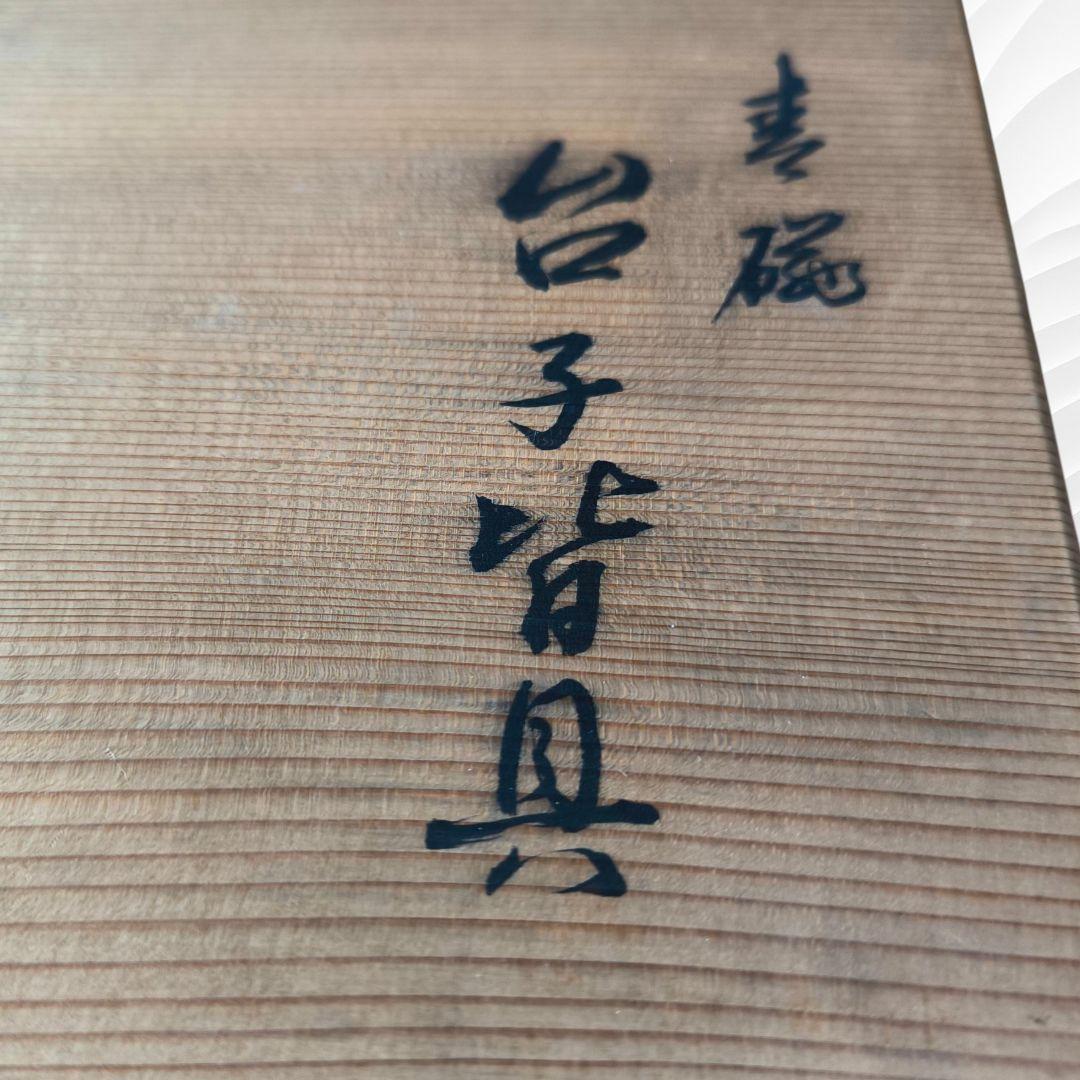 青磁
台子皆具